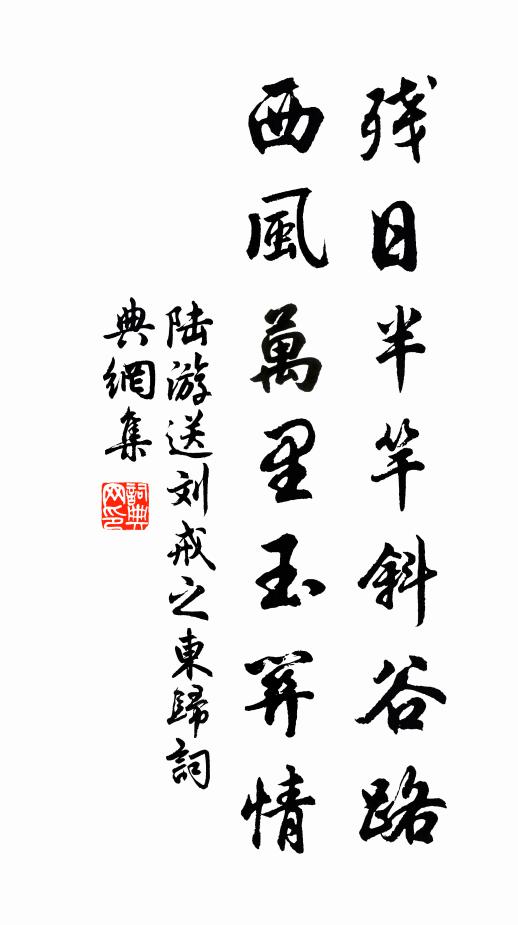 殘日半竿斜谷路
西風萬里玉關情
陸游送刘戒之東歸詞
典網集
詞典
网印